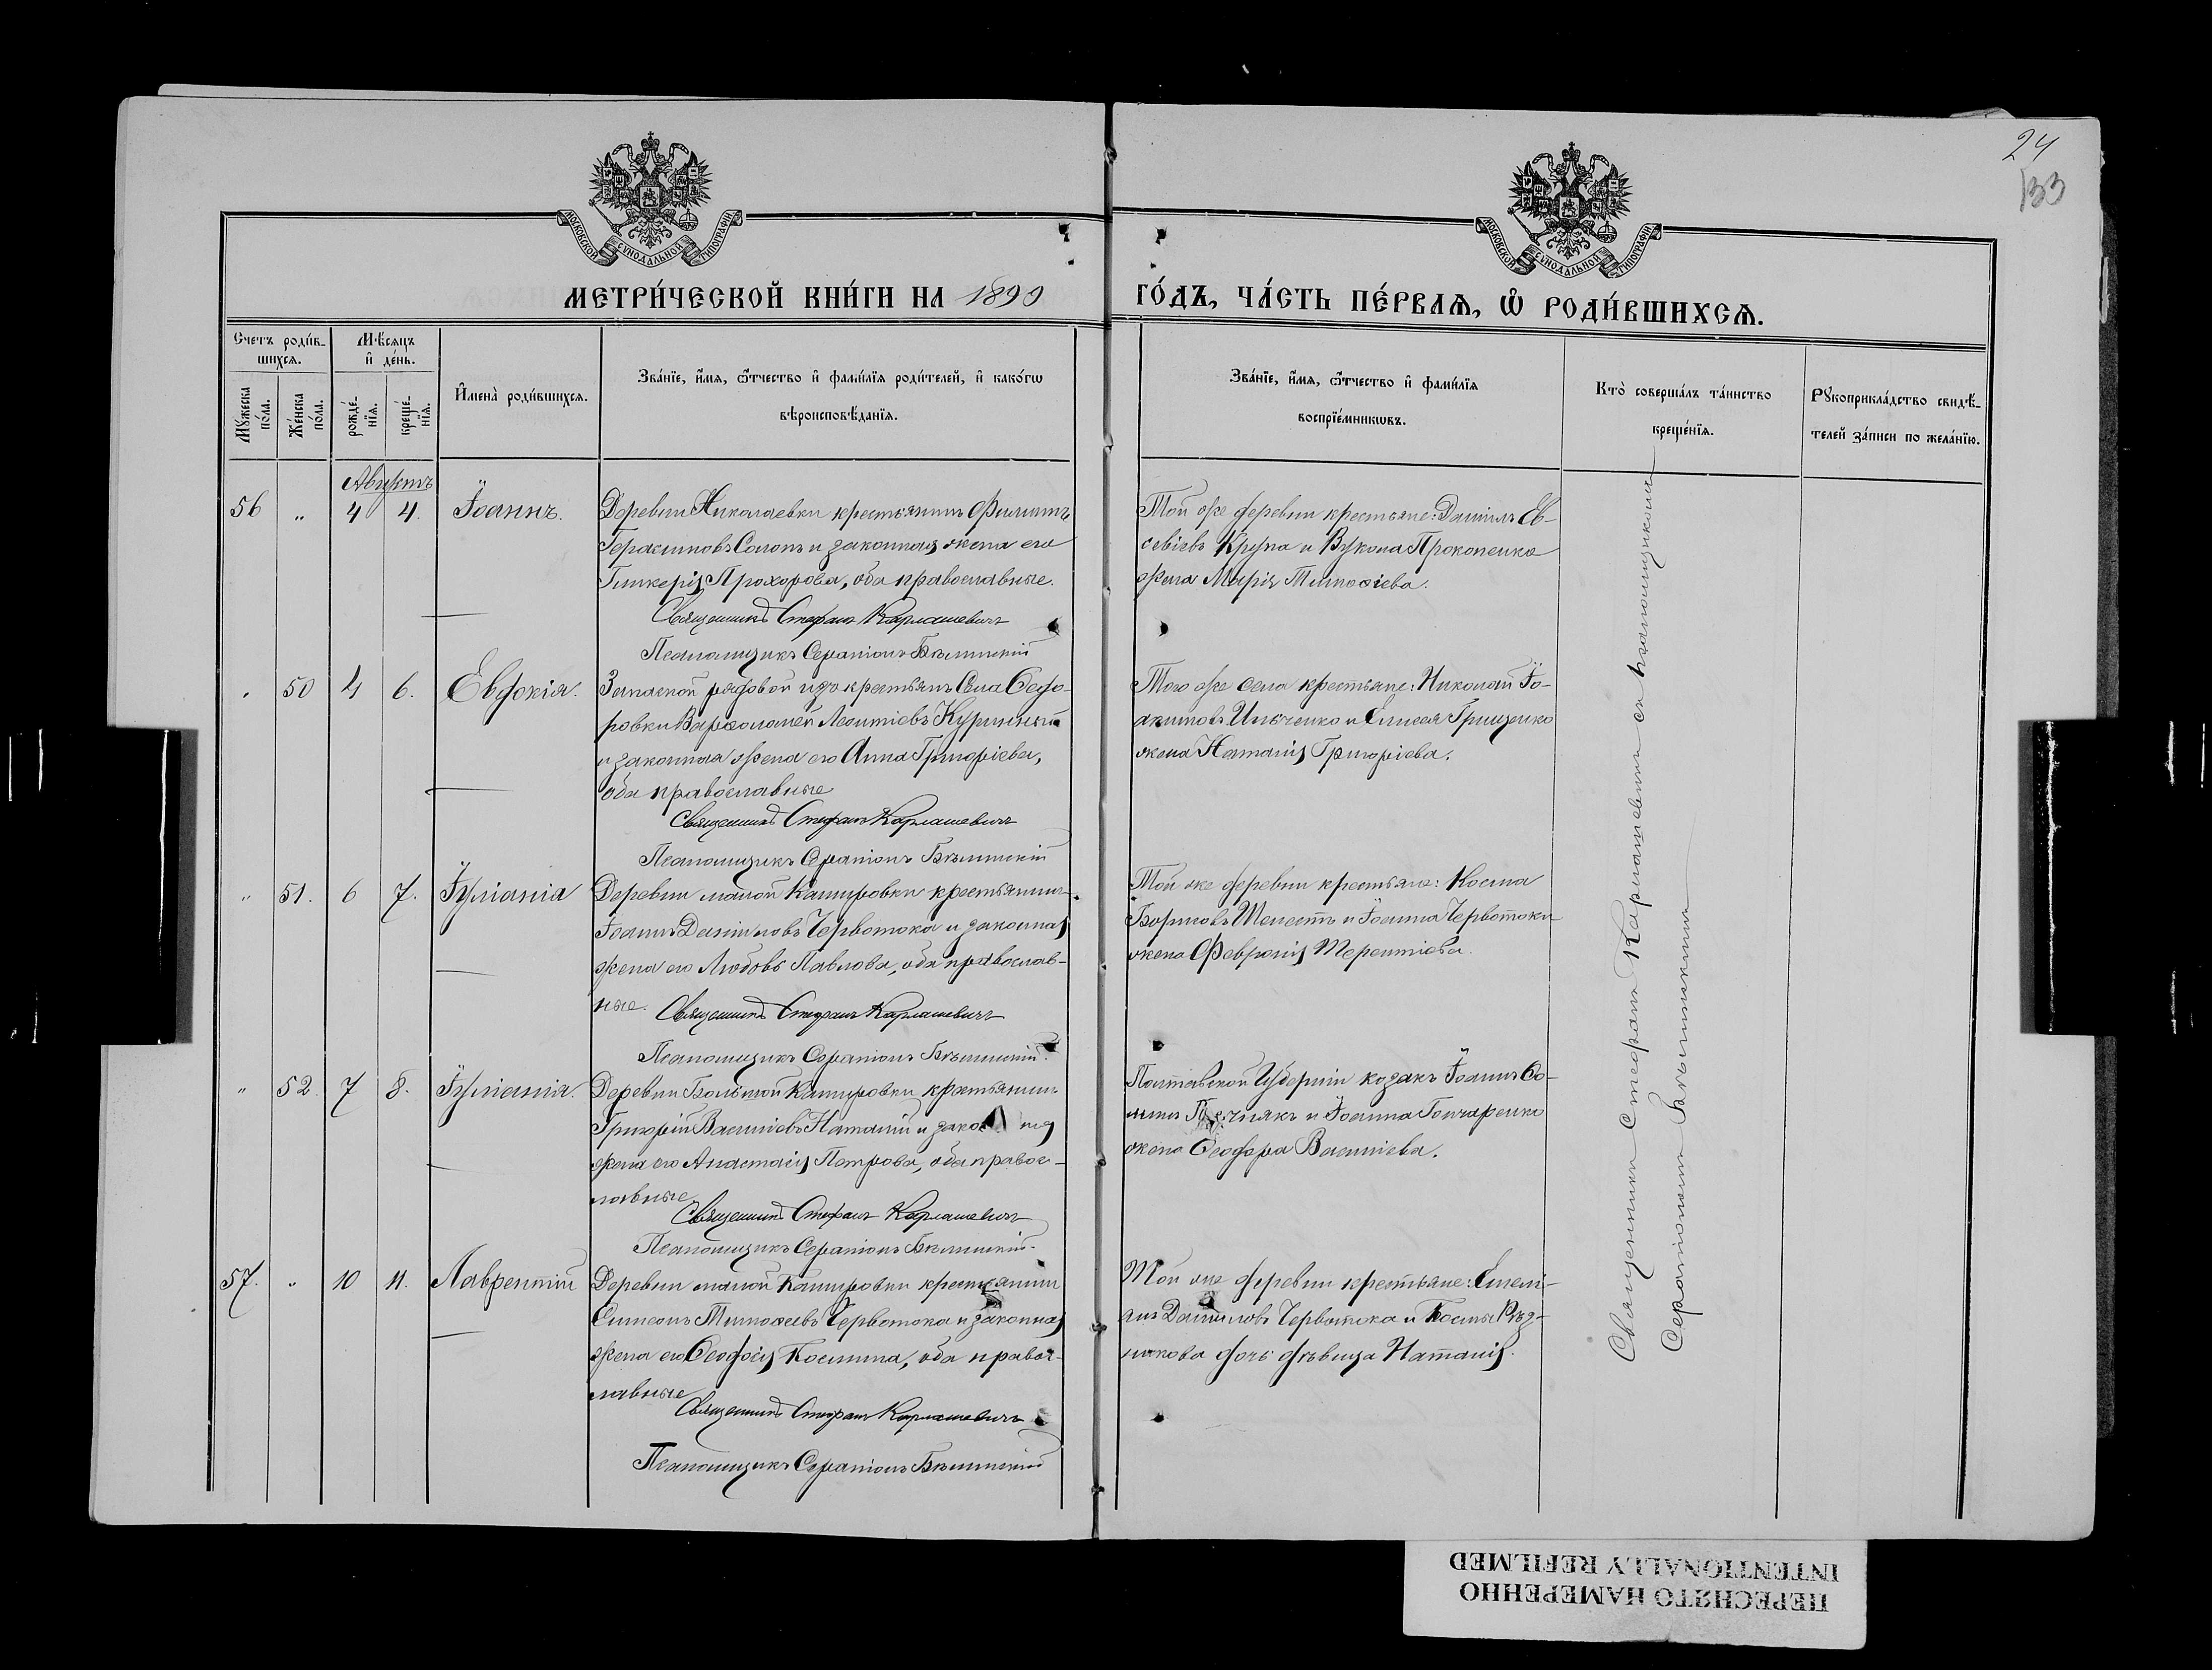 24
133
МОСКОВСКОЙ СУНОДАЛЬНОЙ ТИПОГРАФІИ
МОСКОВСКОЙ СУНОДАЛЬНОЙ ТИПОГРАФІИ
МЕТРИ́ЧЕСКОЙ КНИ́ГИ НА 1890
ГО́ДЪ, ЧА́СТЬ ПЕ́РВАѦ, Ѡ҆ РОДИ́ВШИХСѦ.
Счетъ роди́в-
шихсѧ.
Мѣ́сѧцъ
и҆ де́нь.
Мꙋ́жеска по́ла.
Же́нска по́ла.
рожде́-нїѧ.
креще́-нїѧ.
И҆мена̀ роди́вшихсѧ.
Зва́нїе, и҆́мѧ, ѻ҆́тчество и҆ фами́лїѧ роди́телей, и҆ како́гѡ
вѣроисповѣ́данїѧ.
Зва́нїе, и҆́мѧ, ѻ҆́тчество и҆ фами́лїѧ
воспрїе́мникѡвъ.
Кто̀ соверша́лъ та́инство
креще́нїѧ.
Рꙋкоприкла́дство свидѣ́-
телей за́писи по жела́нїю.
Августъ
56 " 4 4. Іоаннъ.
Деревни Николаевки крестьянинъ Филиппъ
Герасимовъ Солопъ и законная жена его
Гликерія Прохорова, оба православные.
Священникъ Стефанъ Карпашевичъ
Псаломщикъ Серапіонъ Бѣлинскій
Той же деревни крестьяне: Даніилъ Ев-
севіевъ Крупа и Вукола Прокопенко
жена Марія Тимоѳіева.
" 50 4 6. Евдокія.
Запасной рядовой изъ крестьянъ Села Ѳедо-
ровки Варѳоломей Леонтіевъ Куринный
и законная жена его Анна Григоріева,
оба православные
Священникъ Стефанъ Карпашевичъ
Псаломщикъ Серапіонъ Бѣлинскій
Того же села крестьяне: Николай Іо-
акимовъ Ильченко и Елисея Грищенко
жена Наталія Григоріева.
" 51. 6 7. Іуліанія
Деревни малой Кашировки крестьянинъ
Іоаннъ Даніиловъ Червотока и законная
жена его Любовь Павлова, оба православ-
ные. Священникъ Стефанъ Карпашевичъ
Псаломщикъ Серапіонъ Бѣлинскій.
Той же деревни крестьяне: Косма
Борисовъ Шелестъ и Іоанна Червотоки
жена Февронія Терентіева.
" 52. 7 8. Іуліанія.
Деревни Большой Кашировки крестьянинъ
Григорій Василіевъ Наталій и законная
жена его Анастасія Петрова, оба правос-
лавные
Священникъ Стефанъ Карпашевичъ
Псаломщикъ Серапіонъ Бѣлинскій.
Полтавской Губерніи козакъ Іоаннъ Ѳо-
минъ и Іоанна Гончаренко
жена Ѳеодора Василіева.
57. " 10 11. Лаврентій
Деревни малой Кашировки крестьянинъ
Симеонъ Тимоѳеевъ Червотока и законная
жена его Ѳеодосія Космина, оба правос-
лавные
Священникъ Стефанъ Карпашевичъ
Псаломщикъ Серапіонъ Бѣлинскій
Той же деревни крестьяне: Емелі-
анъ Даніиловъ Червотока и Космы Рѣз-
никова дочь дѣвица Наталія.
Священникъ Стефанъ Карпашевичъ съ псаломщикомъ
Серапіономъ Бѣлинскимъ
ПЕРЕСНЯТО НАМЕРЕННО
INTENTIONALLY REFILMED